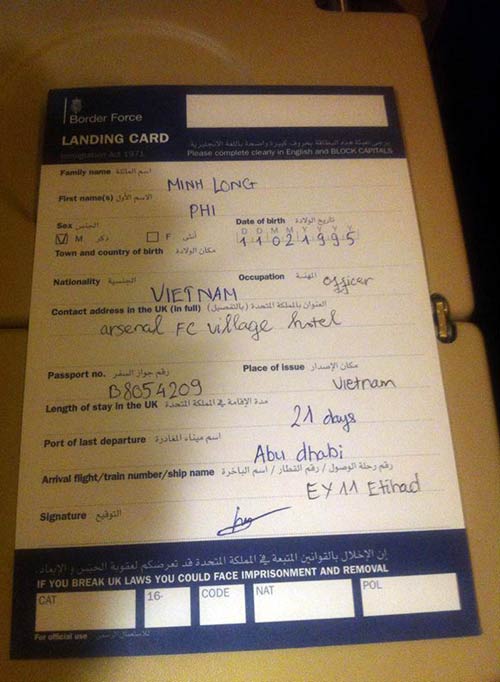 Border Force
LANDING CARD
Immigration Act 1971
يرجى تعبئة هذه البطاقة بحروف كبيرة وواضحة باللغة الانجليزية
Please complete clearly in English and BLOCK CAPITALS
Family name اسم العائلة
MINH LONG
First name(s) الاسم الأول
PHI
Sex الجنس
M ذكر F أنثى
Date of birth تاريخ الولادة
D D M M Y Y Y Y
1 1 0 2 1 9 9 5
Town and country of birth مكان الولادة
Nationality الجنسية Occupation المهنة
VIETNAM officer
Contact address in the UK (in full) العنوان بالمملكة المتحدة (بالتفصيل)
arsenal FC village hotel
Passport no. رقم جواز السفر Place of issue مكان الإصدار
B8054209 Vietnam
Length of stay in the UK مدة الإقامة في المملكة المتحدة
21 days
Port of last departure اسم ميناء المغادرة
Abu dhabi
Arrival flight/train number/ship name رقم رحلة الوصول / رقم القطار / اسم الباخرة
EY11 Etihad
Signature التوقيع
إن الإخلال بالقوانين المتبعة في المملكة المتحدة قد تعرضكم لعقوبة الحبس والإبعاد.
IF YOU BREAK UK LAWS YOU COULD FACE IMPRISONMENT AND REMOVAL
CAT 16- CODE NAT POL
For official use للاستعمال الرسمي